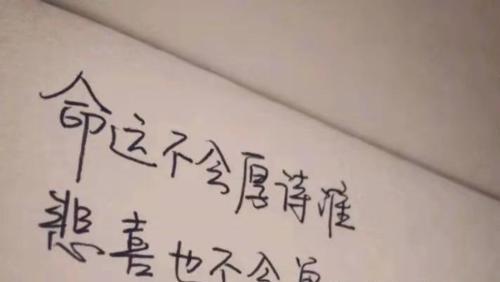 命运不会厚待谁
悲喜也不会